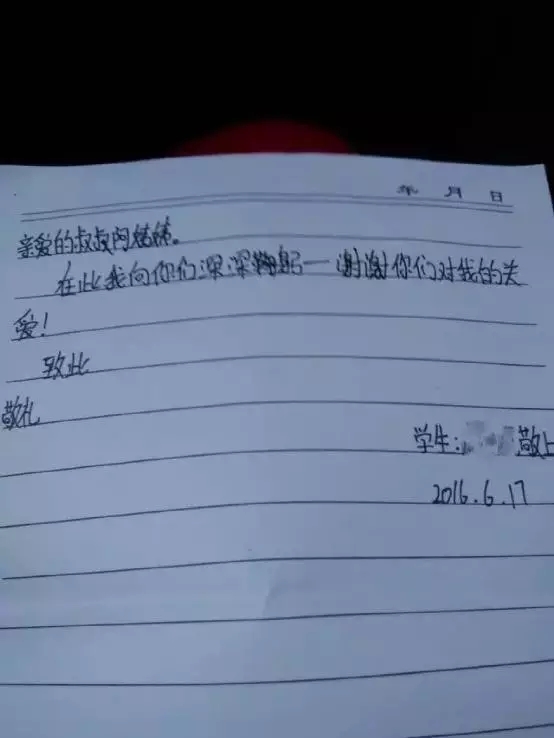 年 月 日
亲爱的叔叔阿姨。
在此我向你们深深鞠躬一谢谢你们对我的关
爱!
致此
敬礼
学生: 敬上
2016.6.17